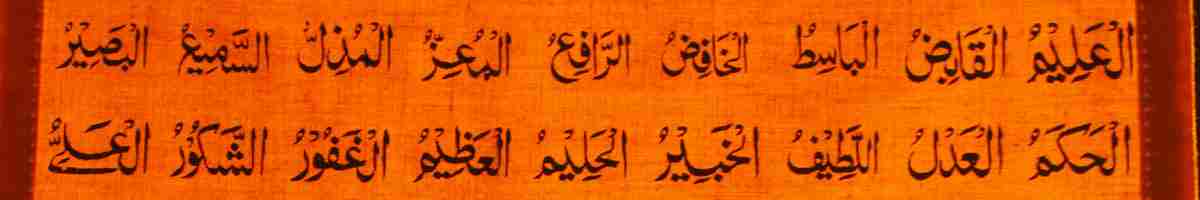 الْعَلِيْمُ الْقَابِضُ الْبَاسِطُ الْخَافِضُ الرَّافِعُ الْمُعِزُّ الْمُذِلُّ السَّمِيْعُ الْبَصِيْرُ
الْحَكَمُ الْعَدْلُ اللَّطِيْفُ الْخَبِيْرُ الْحَلِيْمُ الْعَظِيْمُ الْغَفُوْرُ الشَّكُوْرُ الْعَلِيُّ